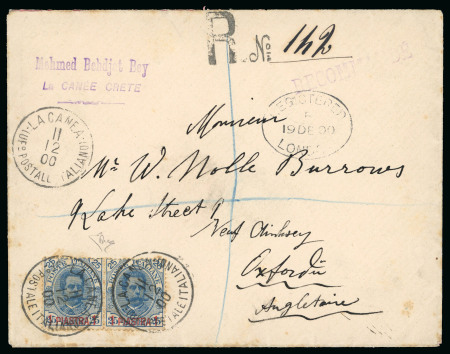 R. No 142
Mahmed Behdjet Bey
LA CANÉE CRETE
RECOMM
REGISTERED
19 DE 00
LONDON
LA CANEA
11
12
00
POSTALE ITALIANO
Monsieur
Mr W. Nolle Burrows
9 Lake Street
New Hinksey
Oxford
Angleterre
1 PIASTRA 1
1 PIASTRA 1